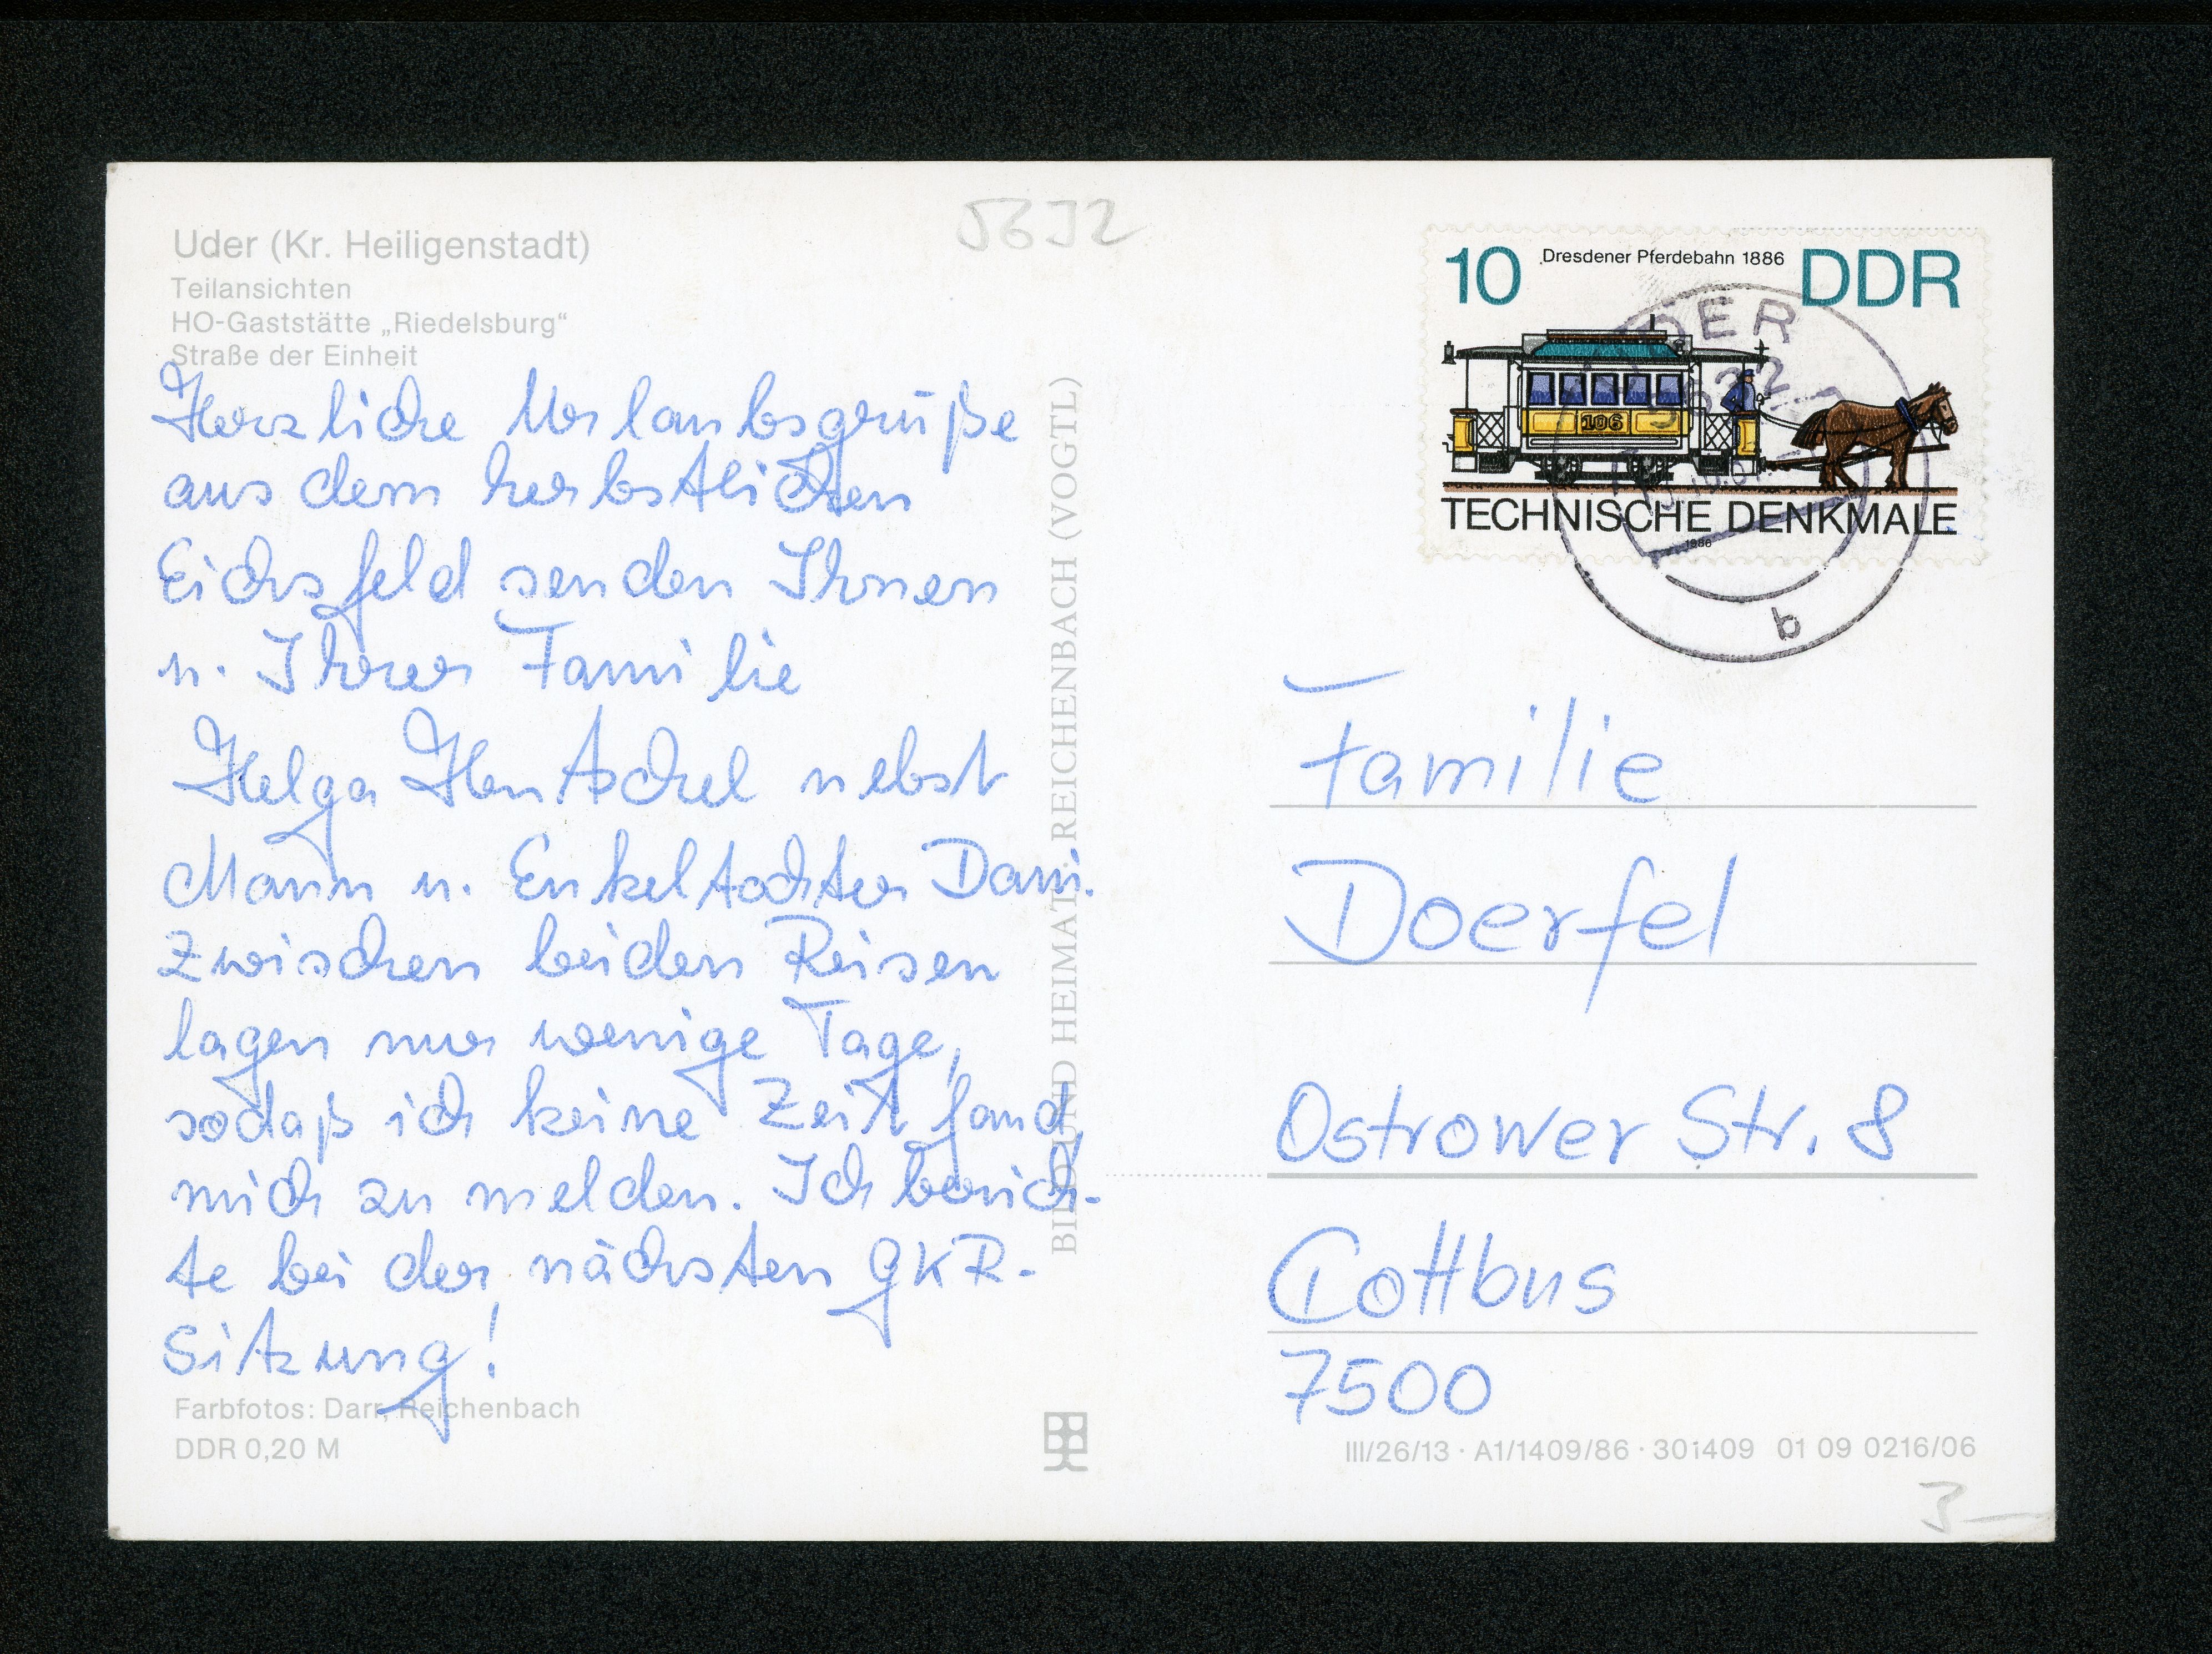 Uder (Kr. Heiligenstadt)
Teilansichten
HO-Gaststätte „Riedelsburg“
Straße der Einheit
Herzliche Urlaubsgrüße
aus dem herbstlichen
Eichsfeld senden Ihnen
u. Ihrer Familie
Helga Hentschel nebst
Mann u. Enkeltochter Dani.
Zwischen beiden Reisen
lagen nur wenige Tage,
sodaß ich keine Zeit fand,
mich zu melden. Ich berich-
te bei der nächsten GKR-
Sitzung!
Farbfotos: Darr, Reichenbach
DDR 0,20 M
BILD UND HEIMAT REICHENBACH (VOGTL)
5632
10 Dresdener Pferdebahn 1886 DDR
106
TECHNISCHE DENKMALE
1986
UDER
b
Familie
Doerfel
Ostrower Str. 8
Cottbus
7500
III/26/13 · A1/1409/86 · 301409 01 09 0216/06
3—